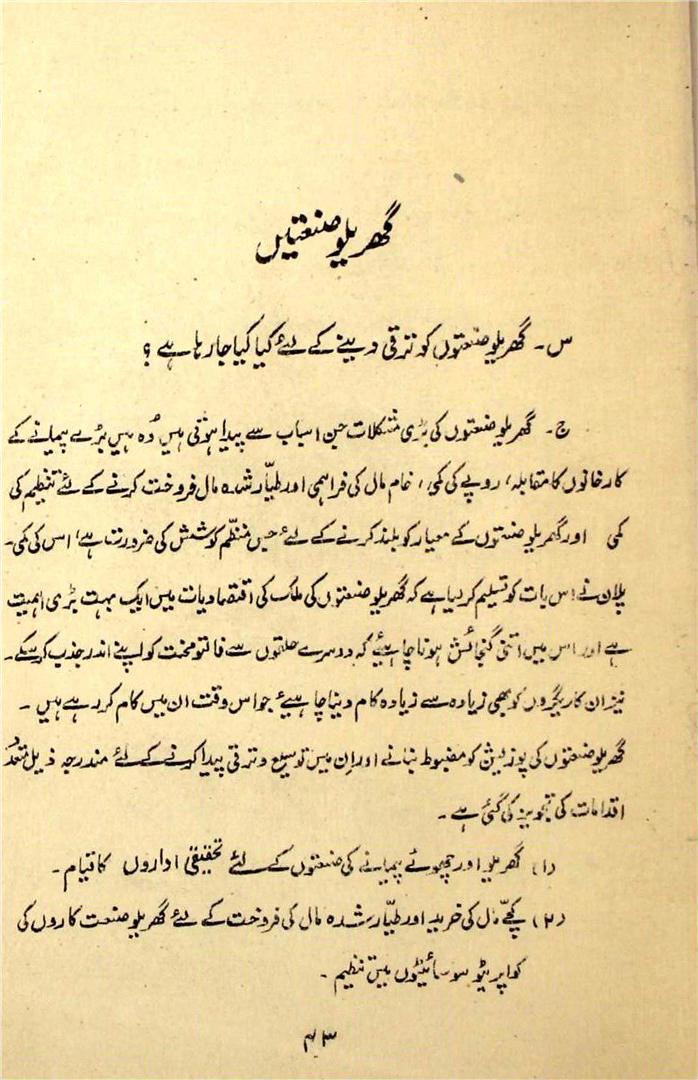 گھریلو صنعتیں
س۔ گھریلو صنعتوں کو ترقی دینے کے لئے کیا کیا جا رہا ہے؟
ج۔ گھریلو صنعتوں کی بڑی مشکلات جن اسباب سے پیدا ہوتی ہیں وُہ ہیں بڑے پیمانے کے
کارخانوں کا مقابلہ، روپے کی کمی، خام مال کی فراہمی اور طیّار شدہ مال فروخت کرنے کے لئے تنظیم کی
کمی اور گھریلو صنعتوں کے معیار کو بلند کرنے کے لئے جس منظّم کوشش کی ضرورت ہے، اس کی کمی۔
پلان نے اس بات کو تسلیم کر دیا ہے کہ گھریلو صنعتوں کی ملک کی اقتصادیات میں ایک بہت بڑی اہمیت
ہے اور اس میں اتنی گنجائش ہونا چاہیئے کہ دوسرے حلقوں سے فالتو محنت کو اپنے اندر جذب کر سکے۔
نیز ان کاریگروں کو بھی زیادہ سے زیادہ کام دینا چاہیئے جو اس وقت ان میں کام کر رہے ہیں۔
گھریلو صنعتوں کی پوزیشن کو مضبوط بنانے اور اِن میں توسیع و ترقی پیدا کرنے کے لئے مندرجہ ذیل متعدّد
اقدامات کی تجویز کی گئی ہے۔
(۱) گھریلو اور چھوٹے پیمانے کی صنعتوں کے لئے تحقیقی اداروں کا قیام۔
(۲) کچّے مال کی خرید اور طیّار شدہ مال کی فروخت کے لئے گھریلو صنعت کاروں کی
کواپریٹو سوسائیٹوں میں تنظیم۔
۴۳